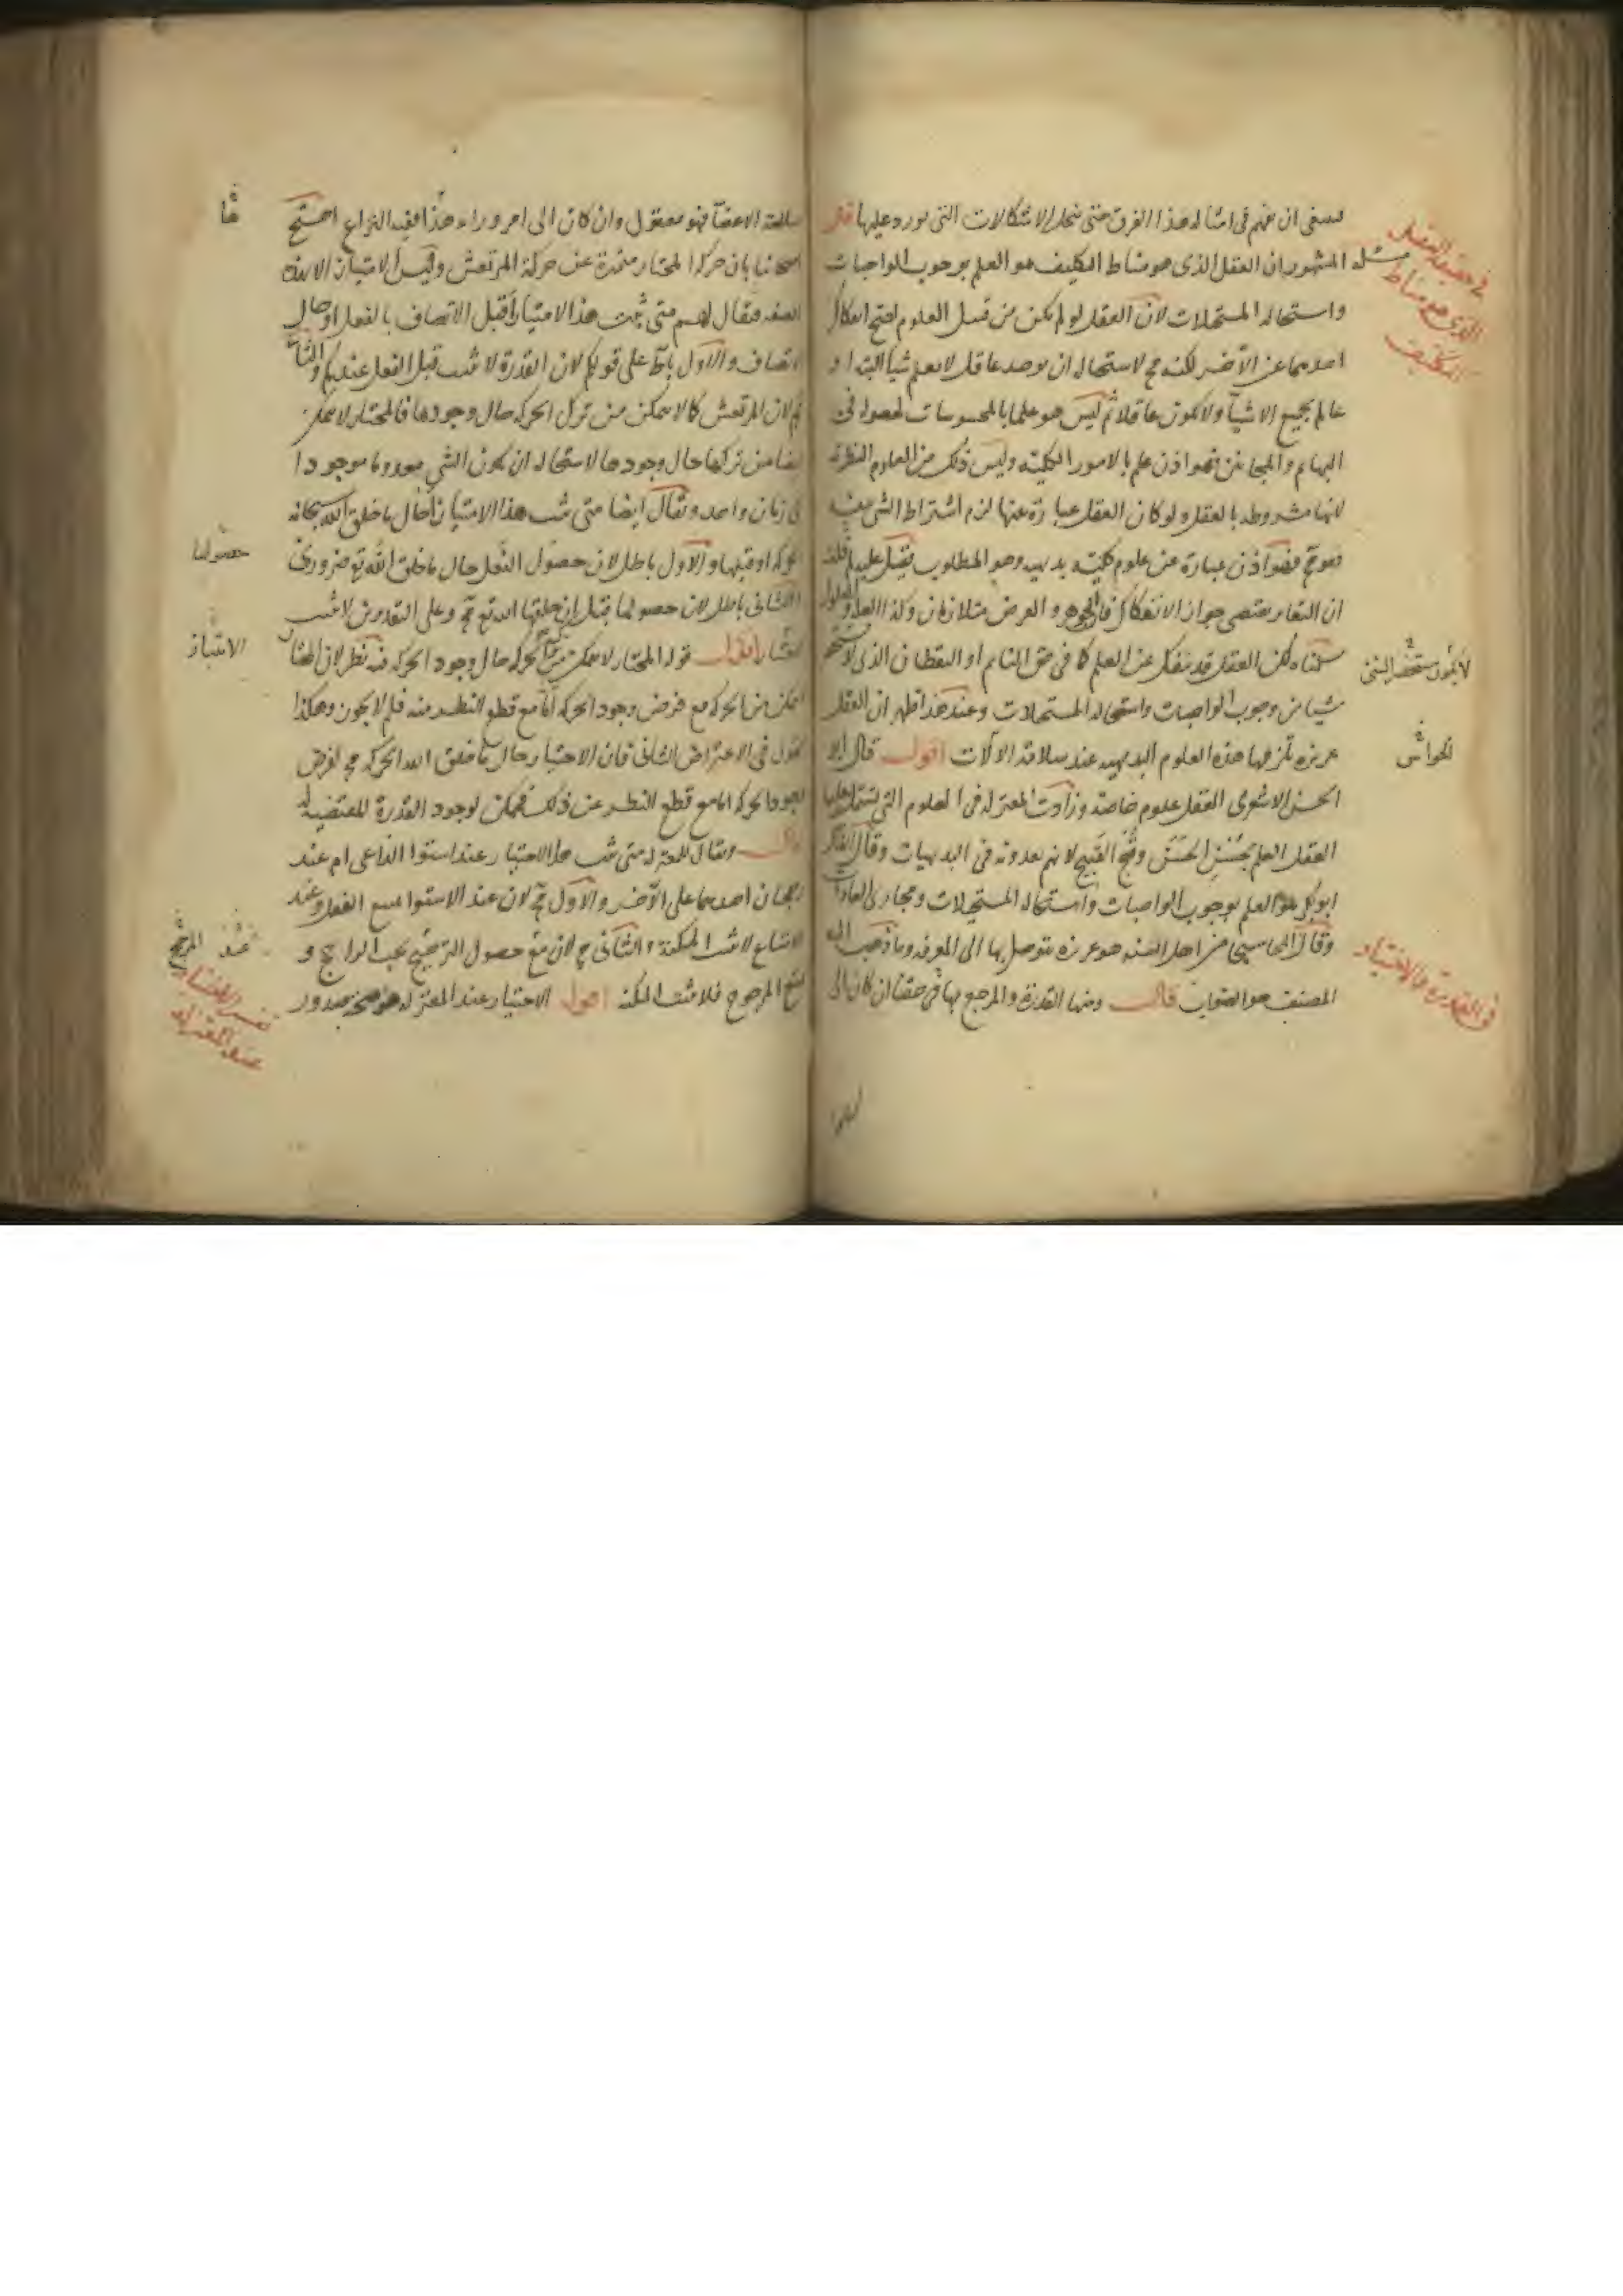 ان نفهم فى امثاله هذا الفرق حتى تنحل الاشكالات التى تورد عليها قال
مسئله المشهور ان العقل الذى هو مناط التكليف هو العلم بوجوب الواجبات
واستحاله المستحيلات لان العقل لو لم يكن من قبيل العلوم لصح انفكاك
احدهما عن الآخر لكنه مح لاستحاله ان يوجد عاقل لا يعلم شيا البته او
عالم بجميع الاشيآ ولا يكون عاقلا ثم ليس هو علما بالمحسوسات لحصوله فى
البهائم والمجانين فهو اذن علم بالامور الكليّه وليس ذلك من العلوم النظريه
لانها مشروطه بالعقل ولو كان العقل عبارة عنها لزم اشتراط الشى بنفسه
وهو مح فهو اذن عبارة عن علوم كليّه بديهيه وهو المطلوب فقيل عليه لم قلت
ان التغاير يقتضى جواز الانفكاك فان الجوهر والعرض متلازمان وكذا العله والمعلول
سلمناه لكن العقل قد ينفك عن العلم كما فى حق النائم او اليقظان الذى لا يستحضر
شيا من وجوب الواجبات واستحاله المستحيلات وعند هذا ظهر ان العقل
غريزه تلزمها هذه العلوم البديهيه عند سلامة الآلات اقول قال ابو
الحسن الاشعرى العقل علوم خاصة وزادت المعتزله فى العلوم التى تشتمل عليها
العقل العلم بحُسْن الحَسَن وقُبح القبيح لانهم يعدونه فى البديهيات وقال القاضى
ابو بكر هو العلم بوجوب الواجبات واستحاله المستحيلات ومجارى العادات
وقال المحاسبى من اهل السنه هو غريزه يتوصل بها الى المعرفه وما ذهب اليه
المصنف هو الصواب قال ومنها القدرة والمرجع بها فى حقنا ان كان الى
فى حقيقة العقل
الذى هو مناط
التكليف
الحواس
فى القدرة والاختيار
سلامة الاعضآ فهو معقول وان كان الى امر وراء هذا ففيه النزاع احتج
اصحابنا بان حركه المختار متميزة عن حركة المرتعش وليس الامتياز الا بهذه
الصفه فيقال لهم متى ثبت هذا الامتياز أقبل الاتصاف بالفعل او حال
الاتصاف والاول باطل على قولكم لان القدرة لا تثبت قبل الفعل عندكم والثانى
مح لان المرتعش كما لا يتمكن من ترك الحركه حال وجودها فالمختار لا يتمكن
ايضا من تركها حال وجودها لاستحاله ان يكون الشى معدوما موجودا
فى زمان واحد ويقال ايضا متى ثبت هذا الامتياز أحال ما خلق الله سبحانه
الحركه او قبلها والاول باطل لان حصول الفعل حال ما خلق الله تع ضرورى
والثانى باطل لان حصولها قبل ان خلقها الله تع مح وعلى التقديرين لا تثبت
اقول قوله المختار لا يتمكن من الحركه حال وجود الحركه فيه نظر لان المختار
يتمكن من الحركه مع فرض وجود الحركه أمّا مع قطع النظر عنه فلم لا يجوز وهكذا
نقول فى الاعتراض الثانى فان الاختيار حال ما خلق الله الحركه مح لفرض
وجود الحركه اما مع قطع النظر عن ذلك فممكن لوجود القدرة المقتضيه له
قال ويقال للمعتزله متى ثبت هذا الاختيار عند استوا الداعى ام عند
رجحان احدهما على الآخر والاول مح لان عند الاستوا يمتنع الفعل وعند
الامتناع لا تثبت المكنة والثانى مح لان مع حصول الترجيح يجب الراجح و
يمتنع المرجوح فلا تثبت المكنه اقول الاختيار عند المعتزله هو صحه صدور
حصولها
الامتياز
تفسير الاختيار
عند المعتزله